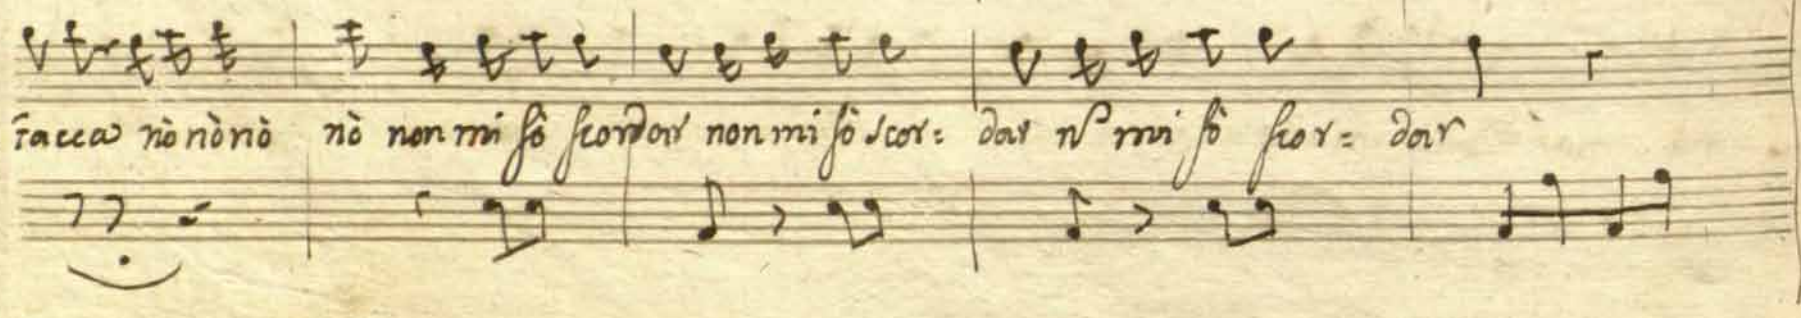 tacca nò nò nò nò non mi sô scordar non mi sô scor= dar nº mi sô scor= dar